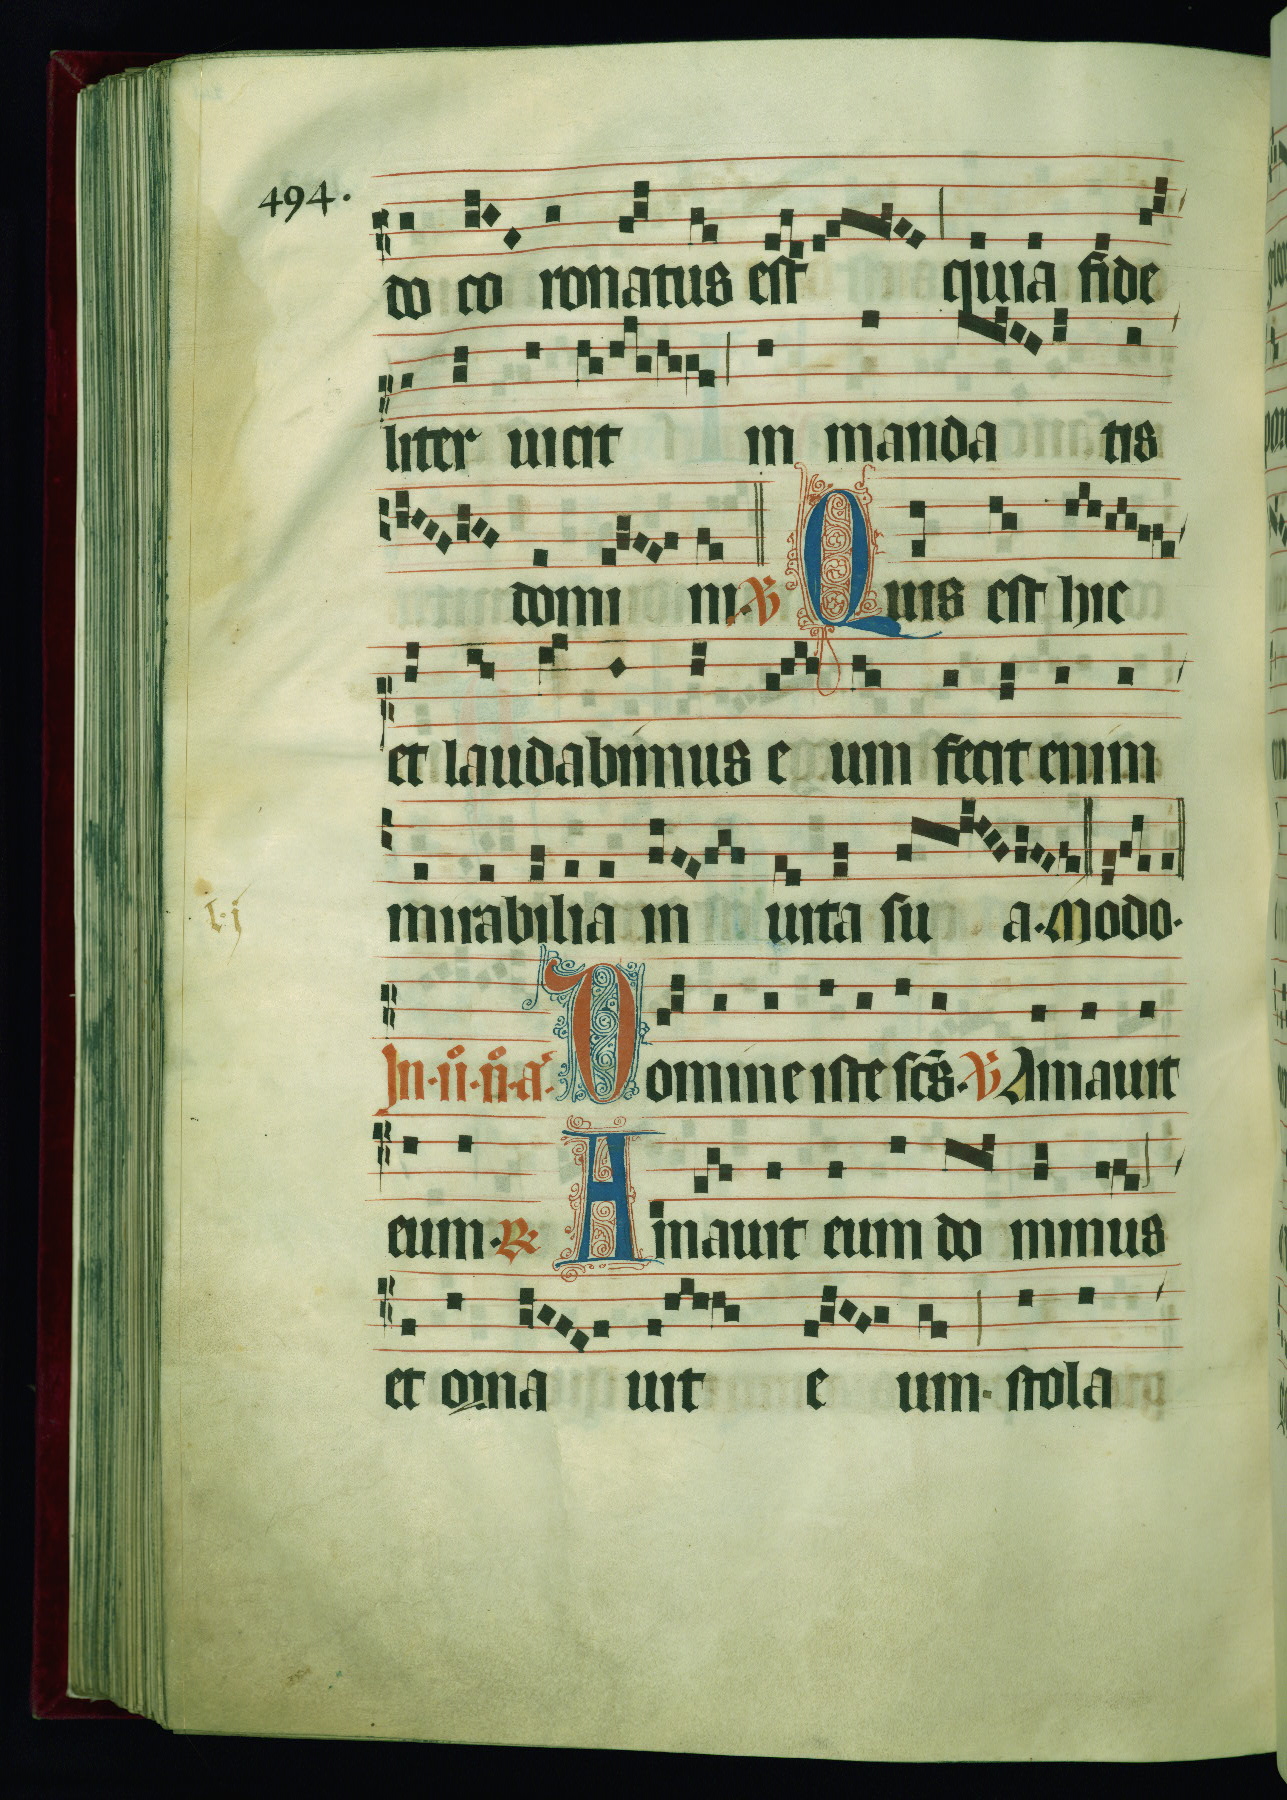 494.
do co ronatus est quia fide
liter uicit in manda tis
domi ni. ℣ Quis est hic
et laudabimus e um fecit enim
mirabilia in uita su a. Modo.
In .ii. n. a. Domine iste scs. ℣ Amauit
eum. ℟ Amauit eum do minus
et orna uit e um. stola